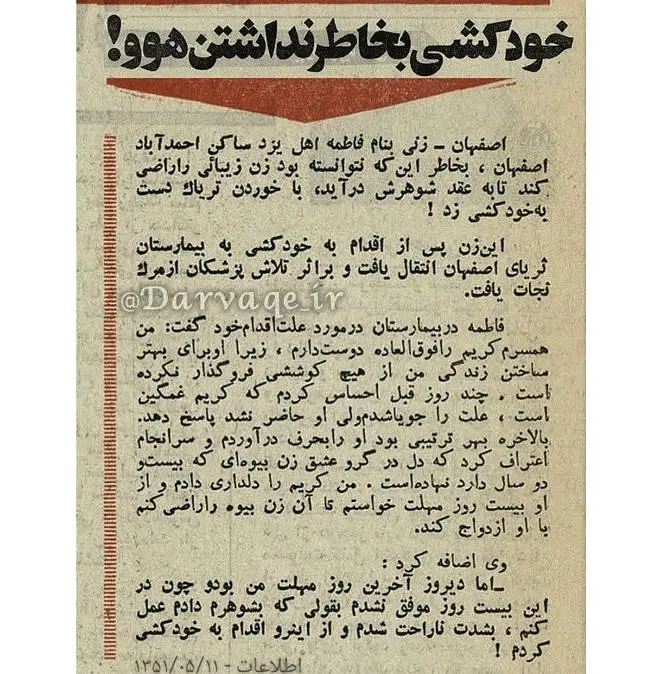 خودکشی بخاطر نداشتن هوو!
اصفهان ــ زنی بنام فاطمه اهل یزد ساکن احمدآباد
اصفهان ، بخاطر این‌که نتوانسته بود زن زیبائی راراضی
کند تابه عقد شوهرش درآید، با خوردن تریاك دست
به‌خودکشی زد !
این‌زن پس از اقدام به خودکشی به بیمارستان
ثریای اصفهان انتقال یافت و براثر تلاش پزشکان ازمرك
نجات یافت.
@Darvaqe_ir
فاطمه دربیمارستان درمورد علت‌اقدام‌خود گفت: من
همسرم‌کریم رافوق‌العاده دوست‌دارم ، زیرا اوبرای بهتر
ساختن زندگی من از هیچ کوششی فروگذار نکرده
است . چند روز قبل احساس کردم که کریم غمگین
است ، علت را جویاشدم‌ولی او حاضر نشد پاسخ دهد.
بالاخره بهر ترتیبی بود او رابحرف درآوردم و سرانجام
اعتراف کرد که دل در گرو عشق زن بیوه‌ای که بیست‌و
دو سال دارد نهاده‌است . من کریم را دلداری دادم و از
او بیست روز مهلت خواستم تا آن زن بیوه راراضی‌کنم
با او ازدواج کند.
وی اضافه کرد :
ــاما دیروز آخرین روز مهلت من بودو چون در
این بیست روز موفق نشدم بقولی که بشوهرم دادم عمل
کنم ، بشدت ناراحت شدم و از اینرو اقدام به خودکشی
کردم !
اطلاعات - ۱۳۵۱/۰۵/۱۱